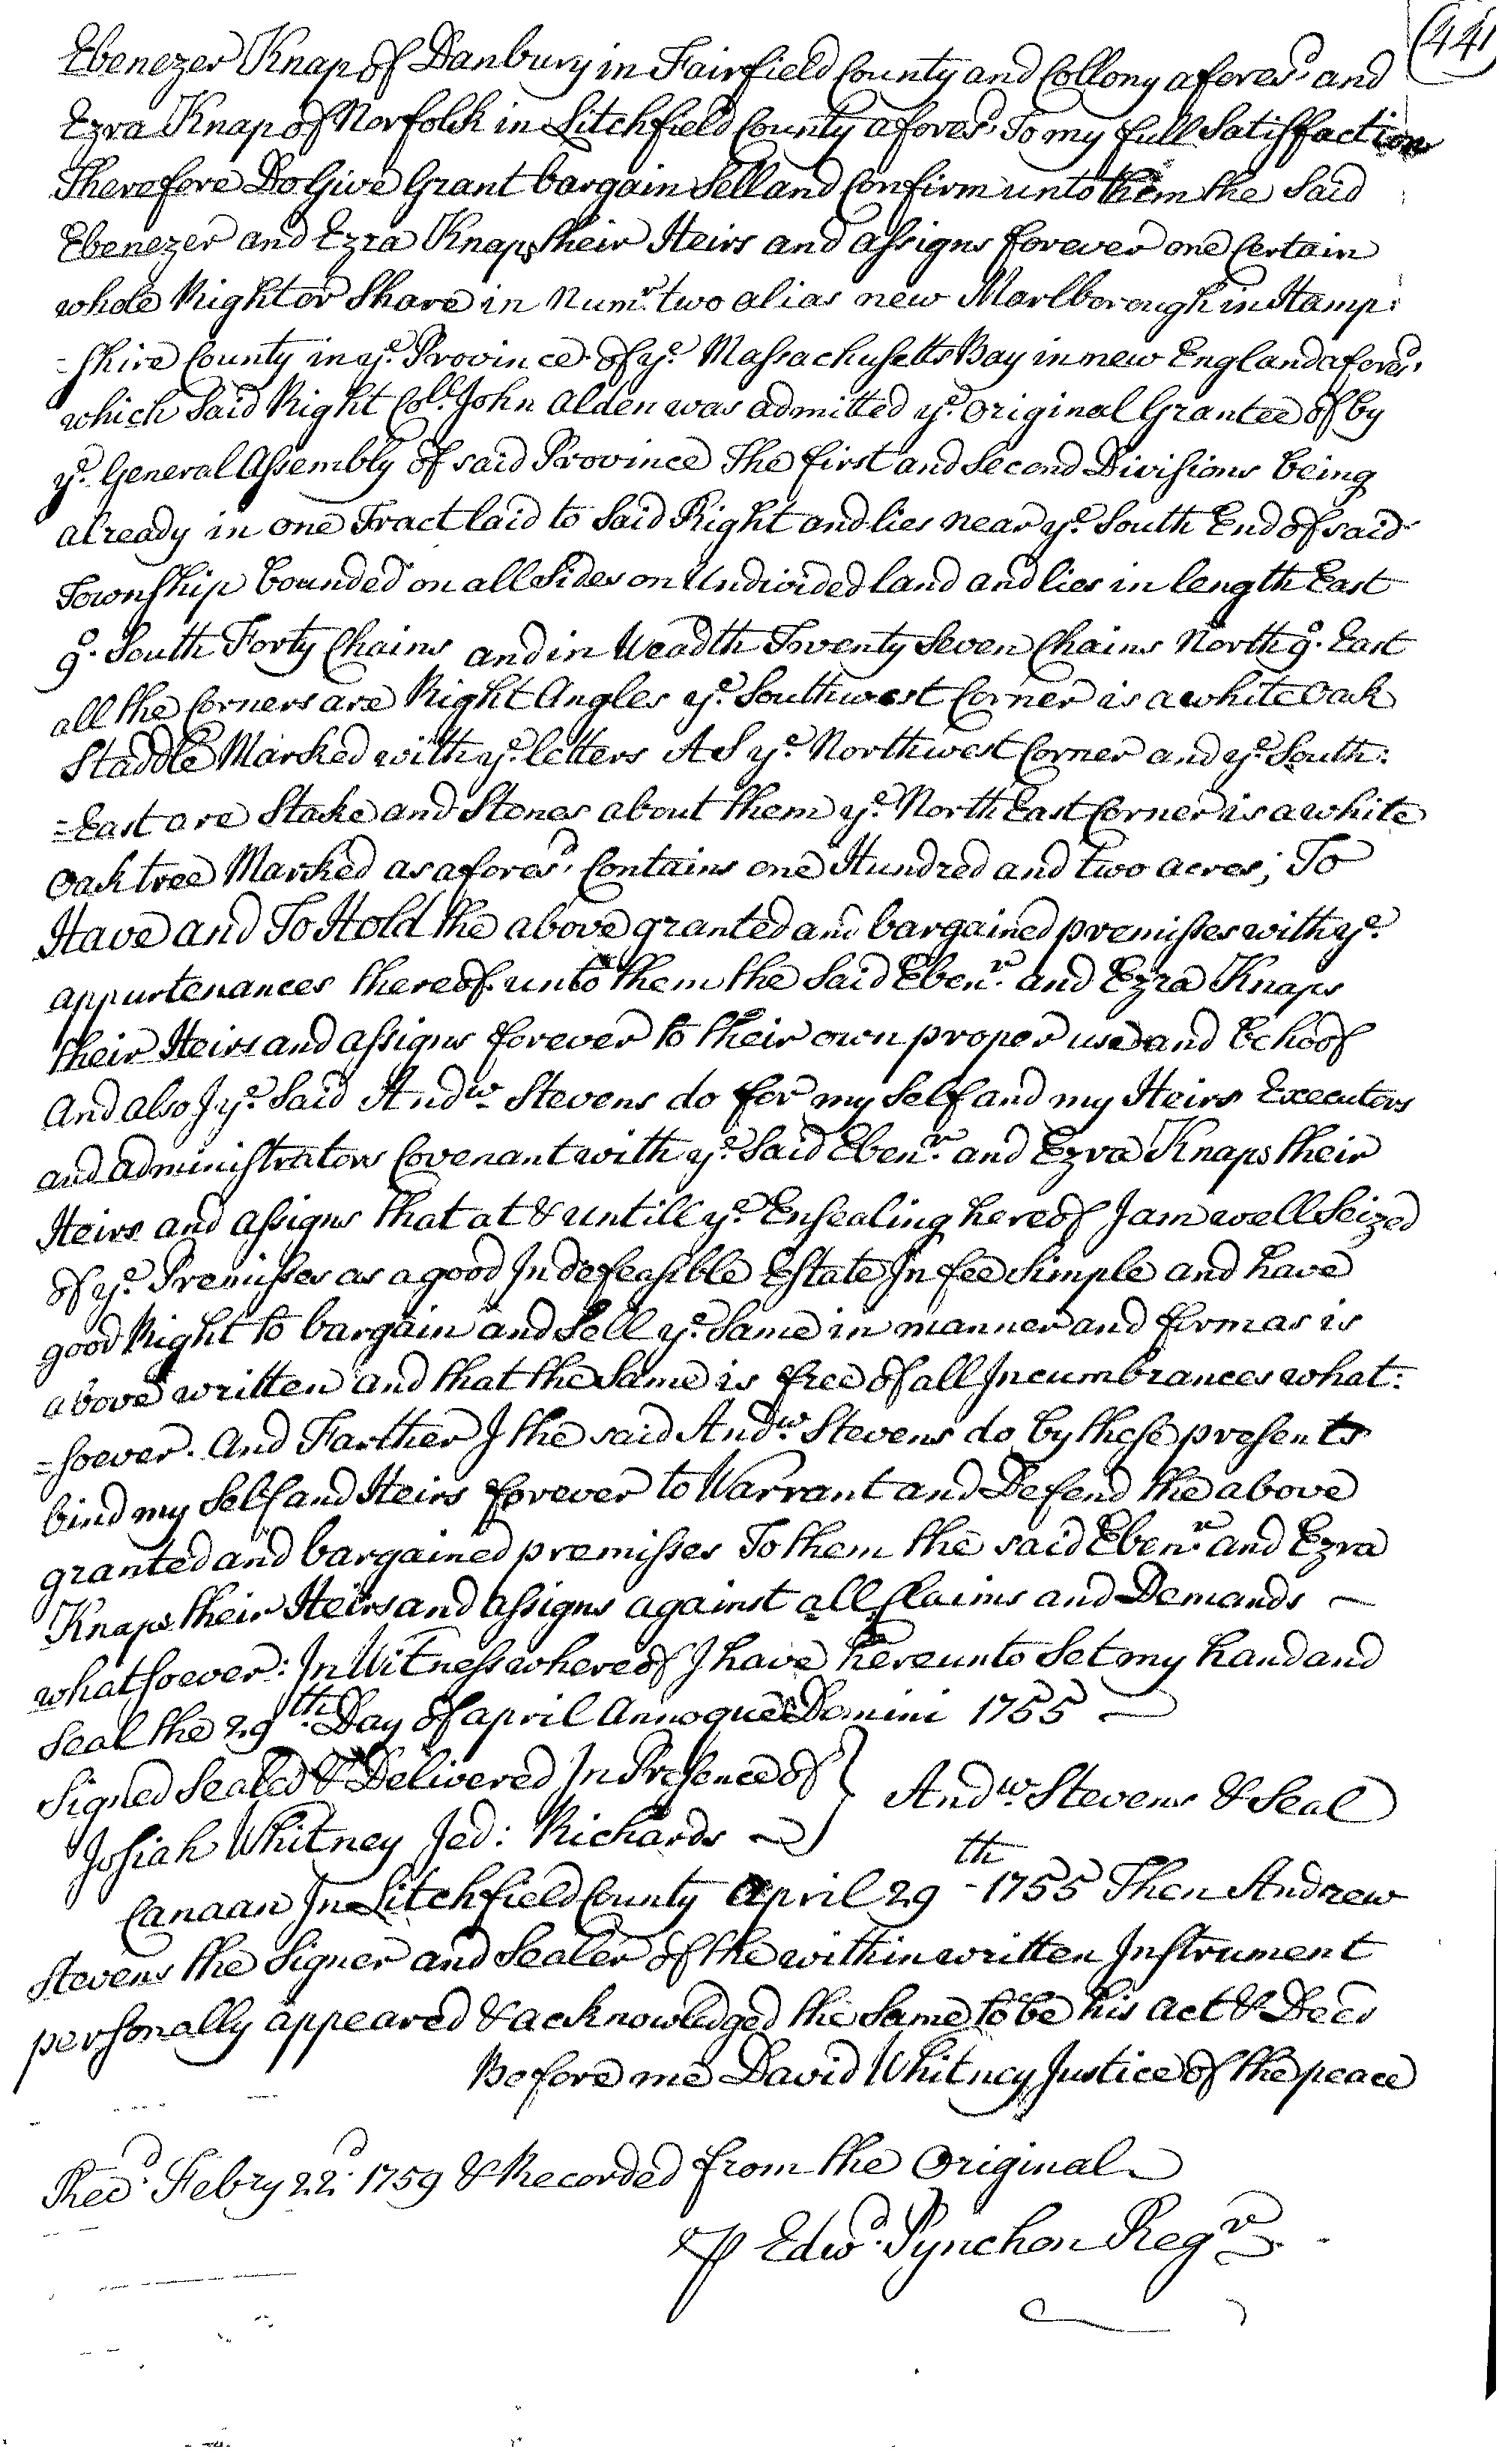 (441
Ebenezer Knap of Danbury in Fairfield County and Collony afores.d and
Ezra Knap of Norfolk in Litchfield County afores.d To my full Satisffaction
Therefore Do Give Grant bargain Sell and Confirm unto them the Said
Ebenezer and Ezra Knaps their Heirs and assigns forever one Certain
whole Right or Share in Num.r two alias new Marlborough in Hamp:
=shire County in y.e Province of y.e Massachusetts Bay in new England afores.d
which Said Right Col.l John Alden was admitted y.e original Grantee of by
y.e General Assembly of said Province The first and Second Divisions being
already in one Tract laid to Said Right and lies near y.e South End of said
Township bounded on all Sides on Undivided land and lies in length East
9.o South Forty Chains and in Weadth Twenty Seven Chains North 9.o East
all the Corners are Right Angles y.e Southwest Corner is a white Oak
Staddle Marked with y.e letters A S y.e Northwest Corner and y.e South:
=East are Stake and Stones about them y.e North East Corner is a white
Oak tree Marked as afores.d Contains one Hundred and two acres; To
Have and To Hold the above granted and bargained premisses with y.e
appurtenances thereof unto them the Said Eben.r and Ezra Knaps
their Heirs and assigns forever to their own proper use and behoof
And also I y.e Said And.w Stevens do for my Self and my Heirs Executors
and administrators Covenant with y.e Said Eben.r and Ezra Knaps their
Heirs and assigns that at & untill y.e Ensealing hereof I am well Seized
of y.e Premisses as a good Indefeasible Estate In fee Simple and have
good Right to bargain and Sell y.e Same in manner and form as is
above written and that the Same is free of all Incumbrances what:
=soever. And Farther I the said And.w Stevens do by these presents
bind my Self and Heirs forever to Warrant and Defend the above
granted and bargained premisses To them the said Eben.r and Ezra
Knaps their Heirs and assigns against all Claims and Demands —
whatsoever: In Witness whereof I have hereunto Set my hand and
Seal the 29.th Day of april Annoque Domini 1755 —
Signed Sealed & Delivered In Presence of } And.w Stevens & Seal
Josiah Whitney Jed: Richards
Canaan In Litchfield County April 29th - 1755 Then Andrew
Stevens the Signer and Sealer of the within written Instrument
personally appeared & acknowledged the Same to be his act & Deed
Before me David Whitney Justice of the peace
Rec.d Febry 22.d 1759 & Recorded from the Original
⅌ Edw.d Pynchon Reg.r